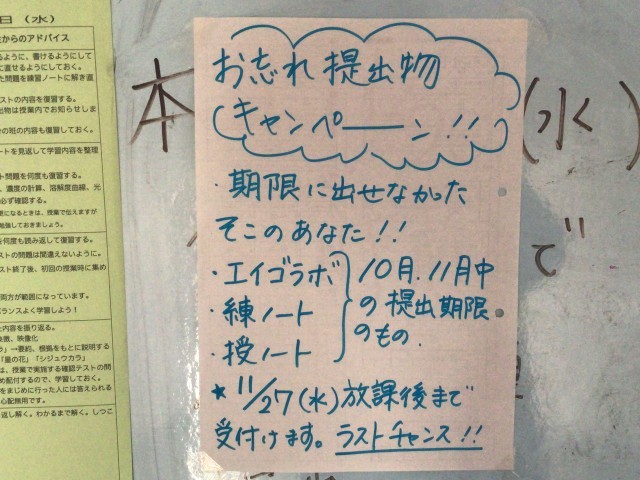 日（水）
からのアドバイス
ように、書けるようにして
に直せるようにしておく。
た問題を練習ノートに解き直
ストの内容を復習する。
出物は授業内でお知らせしま
の班の内容も復習しておく。
ートを見返して学習内容を整理
ト問題を何度も復習する。
、濃度の計算、溶解度曲線、元
必ず確認する。
更になるときは、授業で伝えますが
勉強しておきましょう。
を何度も読み返して復習する。
ストの問題は間違えないように。
スト終了後、初回の授業時に集め
両方が範囲になっています。
バランスよく学習しよう！
た内容を振り返る。
象徴、映像化
」→要約、根拠をもとに説明する
「星の花」「シジュウカラ」
は、授業で実施する確認テストの問
め配付するので、学習しておく。
をまじめに行った人には答えられる
心配無用です。
返し解く。わかるまで解く。しつこ
本
（水）
で
お忘れ提出物
キャンペーーン！！
・期限に出せなかった
そこのあなた！！
・エイゴラボ
・練ノート
・授ノート
10月．11月中
の提出期限
のもの．
★11/27（水）放課後まで
受付けます。ラストチャンス！！